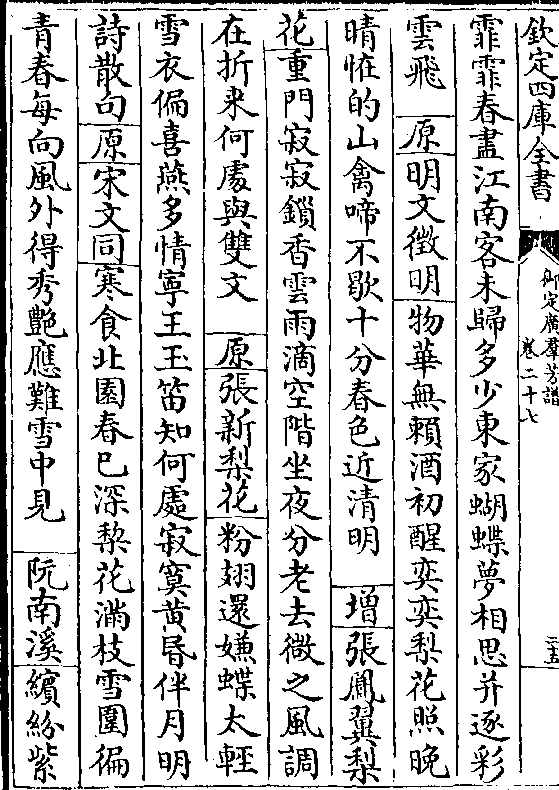 欽定四庫全書
御定廣羣芳譜
卷二十七
二十五
霏霏春盡江南客未歸多少東家蝴蝶夢相思并逐彩
雲飛　原明文徵明物華無賴酒初醒奕奕梨花照晚
晴恠的山禽啼不歇十分春色近清明　増張鳳翼梨
花重門寂寂鎖香雲雨滴空階坐夜分老去微之風調
在折来何處與雙文　原張新梨花粉翅還嫌蝶太輕
雪衣偏喜燕多情寧王玉笛知何處寂寞黄昬伴月明
詩散句原宋文同寒食北園春已深梨花滿枝雪圍徧
青春每向風外得秀艷應難雪中見　阮南溪繽紛紫